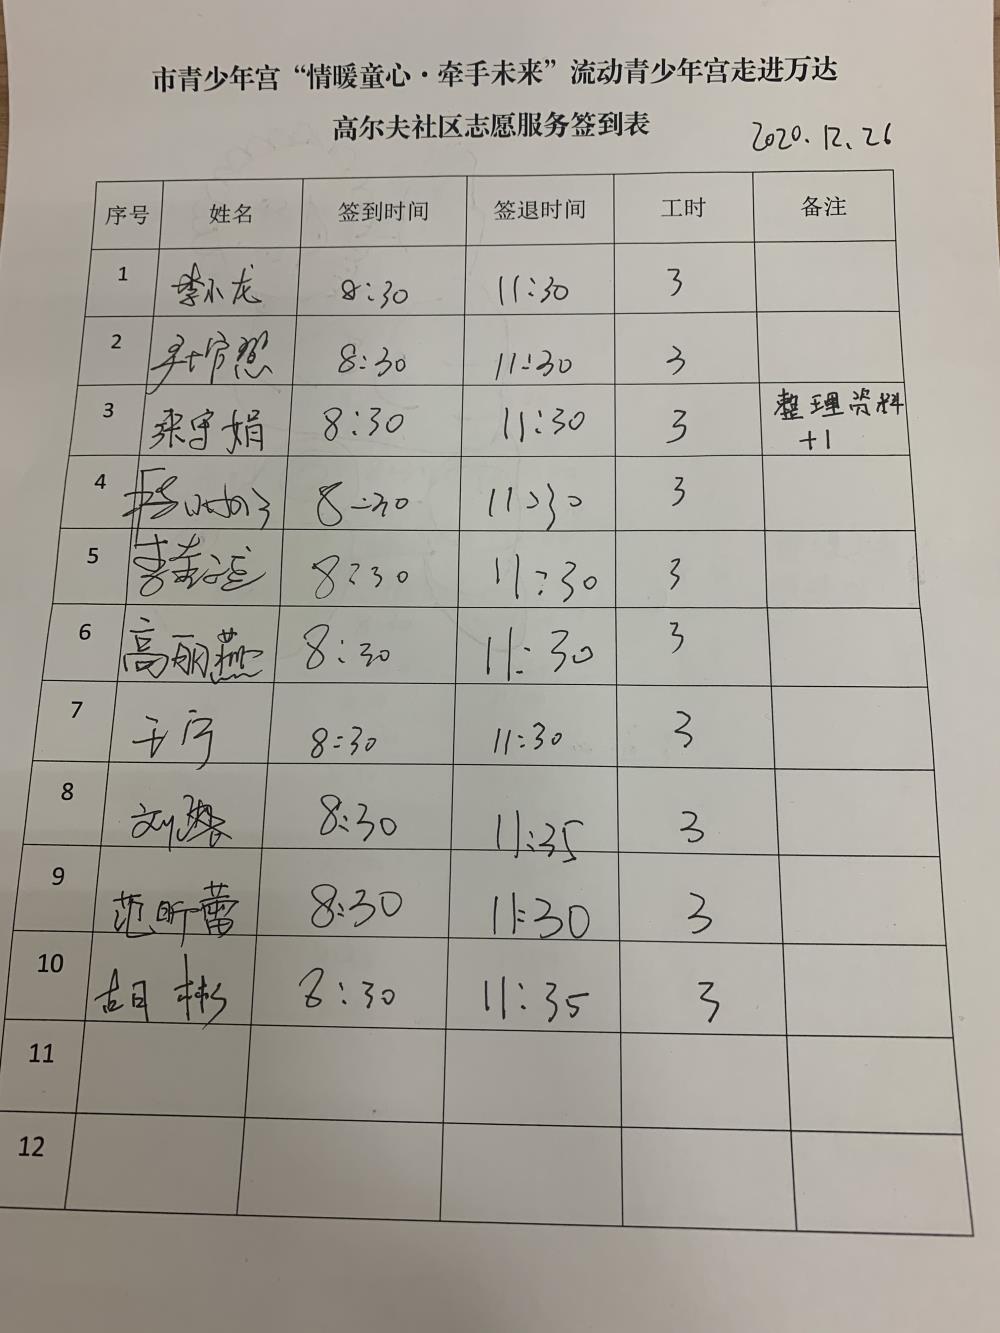 市青少年宫“情暖童心·牵手未来”流动青少年宫走进万达
高尔夫社区志愿服务签到表
2020.12.26
序号 姓名 签到时间 签退时间 工时 备注
1 李小龙 8:30 11:30 3
2 8:30 11:30 3
3 张宇娟 8:30 11:30 3 整理资料
+1
4 8:30 11:30 3
5 8:30 11:30 3
6 高丽燕 8:30 11:30 3
7 于宁 8:30 11:30 3
8 刘 8:30 11:35 3
9 范昕蕾 8:30 11:30 3
10 胡彬 8:30 11:35 3
11
12